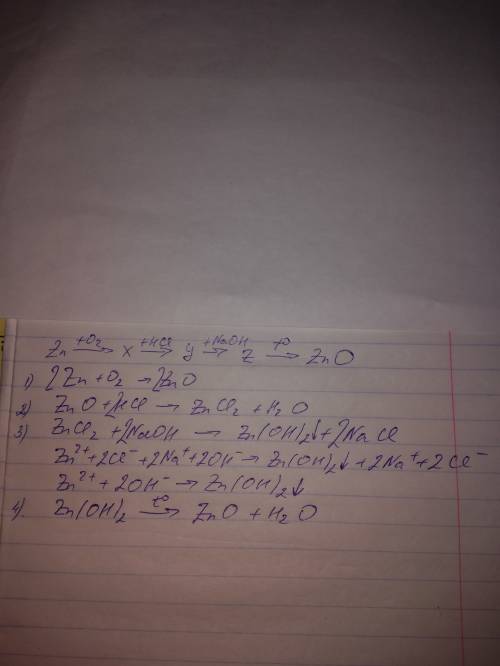 Zn +O₂→ x +HCl→ y +NaOH→ Z t°→ ZnO
1) 2Zn + O₂ → 2ZnO
2) ZnO + 2HCl → ZnCl₂ + H₂O
3) ZnCl₂ + 2NaOH → Zn(OH)₂↓ + 2NaCl
Zn²⁺ + 2Cl⁻ + 2Na⁺ + 2OH⁻ → Zn(OH)₂↓ + 2Na⁺ + 2Cl⁻
Zn²⁺ + 2OH⁻ → Zn(OH)₂↓
4). Zn(OH)₂ t°→ ZnO + H₂O